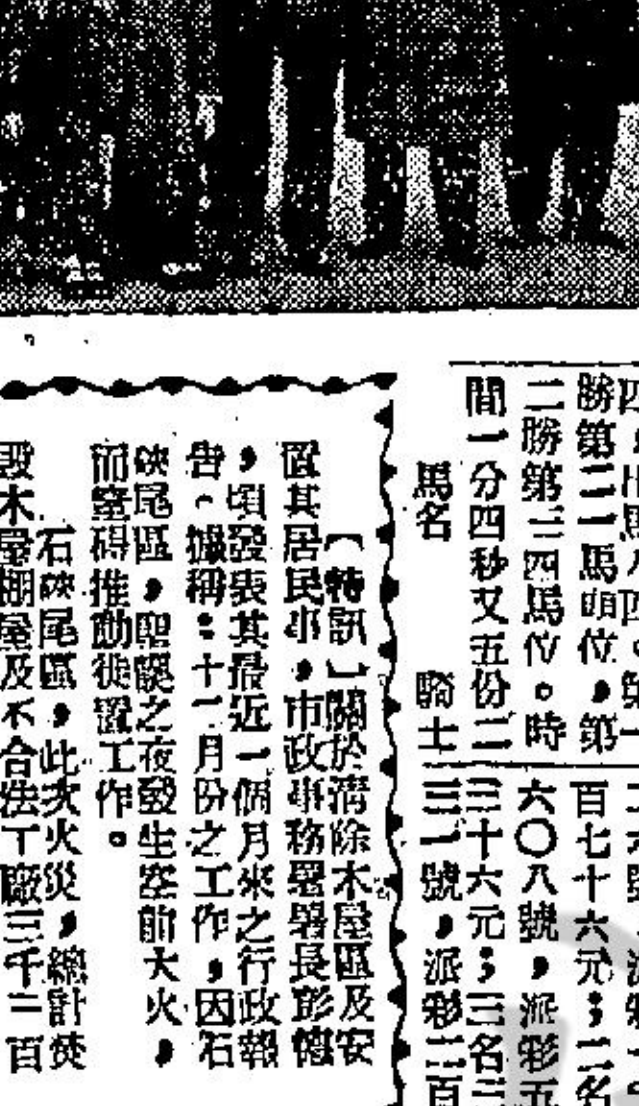 勝第二一馬頭位，第
二勝第三四馬位。時
間一分四秒又五份二
馬名　騎士
百七十六元；二名
六〇八號，派彩五
三十六元；三名三
三一號，派彩二百
（特訊）關於清除木屋區及安
置其居民事，市政事務署署長彭德
，頃發表其最近一個月來之行政報
告。據稱：十二月份之工作，因石
硤尾區，聖誕之夜發生空前大火，
而窒碍推動徙置工作。
石硤尾區，此次火災，總計焚
毀木屋棚屋及不合法工廠三千二百